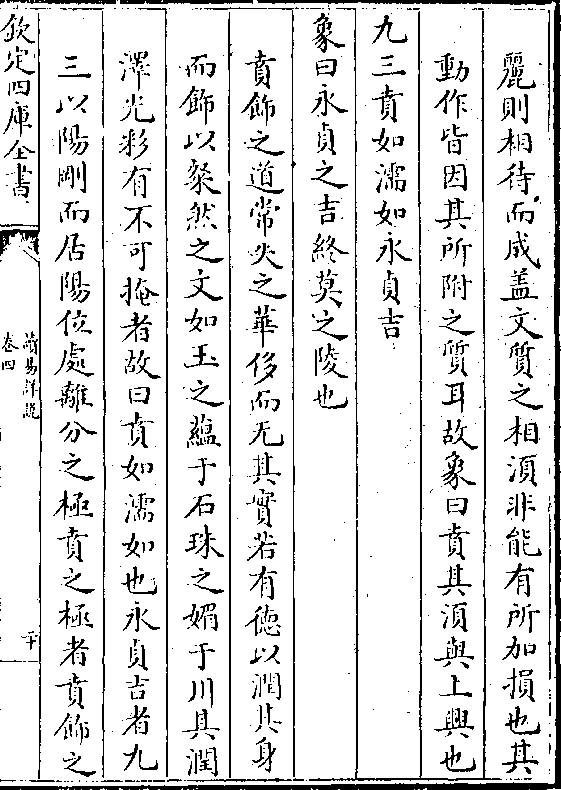 麗則相待而成盖文質之相湏非能有所加損也其
動作皆因其所附之質耳故象曰賁其湏與上興也
九三賁如濡如永貞吉
象曰永貞之吉終莫之陵也
賁飾之道常失之華侈而无其實若有德以潤其身
而飾以粲然之文如玉之蘊于石珠之媚于川其潤
澤光彩有不可掩者故曰賁如濡如也永貞吉者九
三以陽剛而居陽位處離分之極賁之極者賁飾之
欽定四庫全書
讀易詳說
卷四
二十